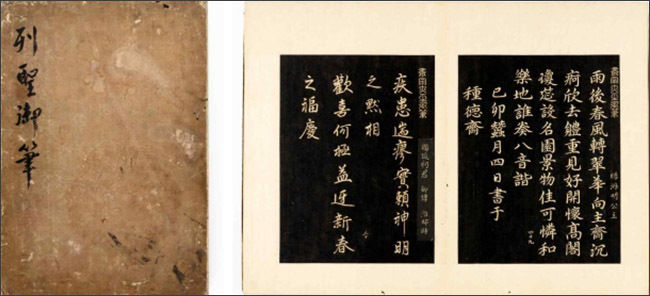 列聖御筆
明公主
雨後春風轉翠華向主齋沉
痾欣去軆重見好開懷高閣
瓊筵設名園景物佳可憐和
樂地誰奏八音諧
己卯蠶月四日書于
種德齋
疾患遄瘳實賴神明
之黙相
歡喜何極益迓新春
之福慶